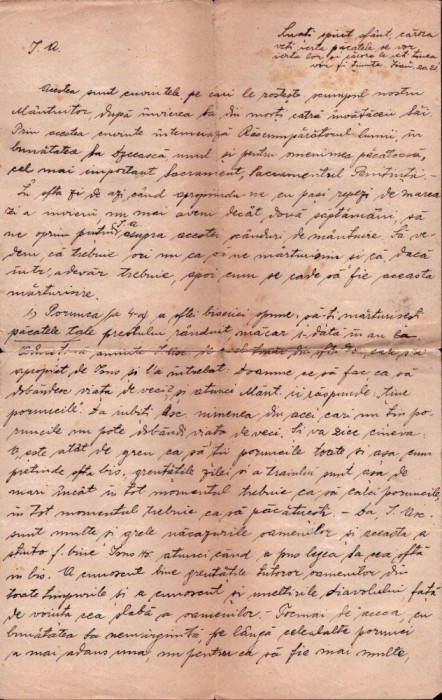 Luați spirit sfânt, cărora
veți ierta păcatele se vor
ierta lor și cărora le veți ținea
vor fi ținute. Ioan. 20.21
I. A.
Acestea sunt cuvintele pe cari le rostește scumpul nostru
Mântuitor, după învierea Sa din morți cătră învățăceii Săi
Prin acestea cuvinte întemeiază Răscumpărătorul lumii, în
bunătatea Sa Dzeească, unul și pentru omenimea păcătoasă,
cel mai important Sacrament, Sacramentul Penitinții.-
În ofta zi de azi, când apropiindu-ne cu pași repezi de marea
zi a învierii nu mai avem decât două săptămâni, să
ne oprim puțin asupra acestor gânduri de mântuire. Să ve-
dem că trebuie ori nu ca să ne mărturisim și că, dacă
într'adevăr trebuie, apoi cum se cade să fie aceasta
mărturisire.
1) Porunca a 4-a a sftei biserici spune, să-ți mărturisești
păcatele tale preotului rânduit măcar 1-dată în an
apropiat de Isus și l'a întrebat: Doamne ce să fac ca să
dobândesc viața de veci? și atunci Mânt. îi răspunde: ține
poruncile. Da iubiți asc. nimenea din acei cari nu țin po-
runcile nu pote dobândi viața de veci. Și va zice cineva:
este atât de greu ca să ții poruncile toate și așa cum
pretinde sfta bis. greutățile zilei și a traiului sunt așa de
mari încât în tot momentul trebuie ca să calci poruncile,
în tot momentul trebuie ca să păcătuești. - Da, I. Asc.
sunt multe și grele năcazurile oamenilor și aceasta a
știut-o f. bine Isus Hs. atunci când a pus legea Sa cea sftă
în bis. A cunoscut bine greutățile tuturor oamenilor din
toate timpurile și a cunoscut și uneltirile diavolului față
de voința cea slabă a oamenilor. - Tocmai de aceea, cu
bunătatea Sa nemărginită, pe lângă celealalte porunci
a mai adaus una, nu pentru ca să fie mai multe,